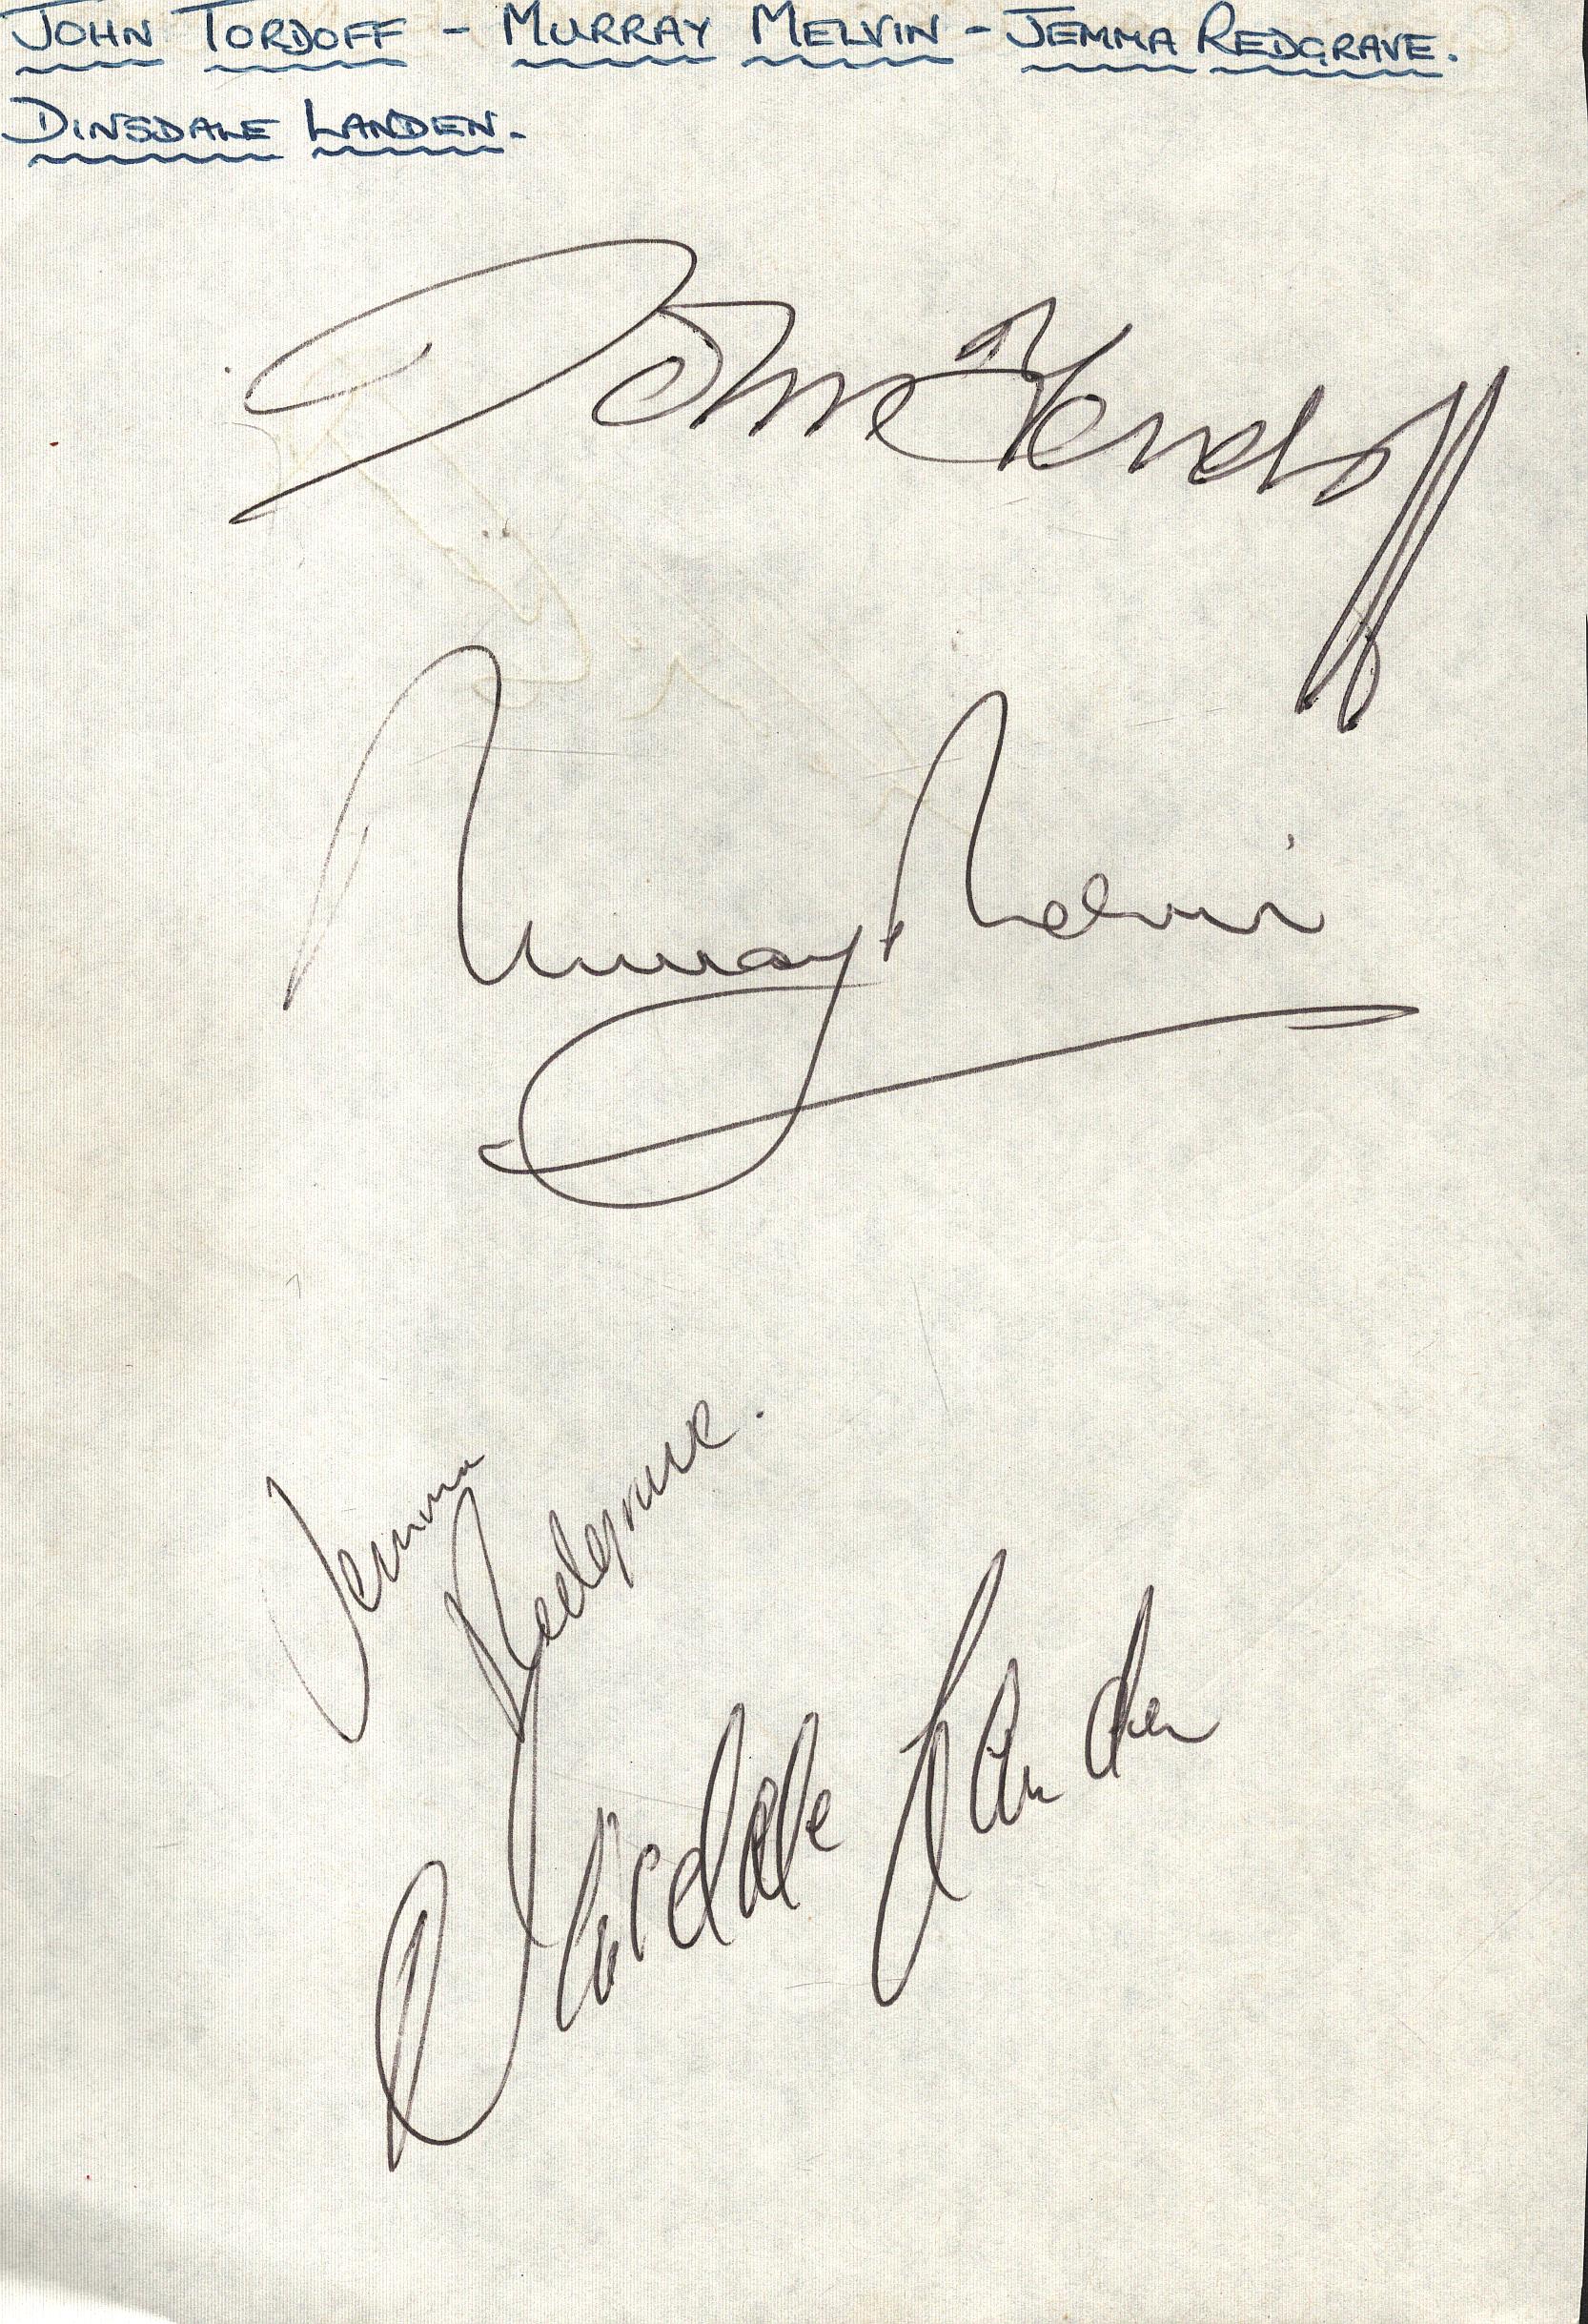 JOHN TORDOFF - MURRAY MELVIN - JEMMA REDGRAVE.
DINSDALE LANDEN.
John Tordoff
Murray Melvin
Jemma
Redgrave.
Dinsdale Landen